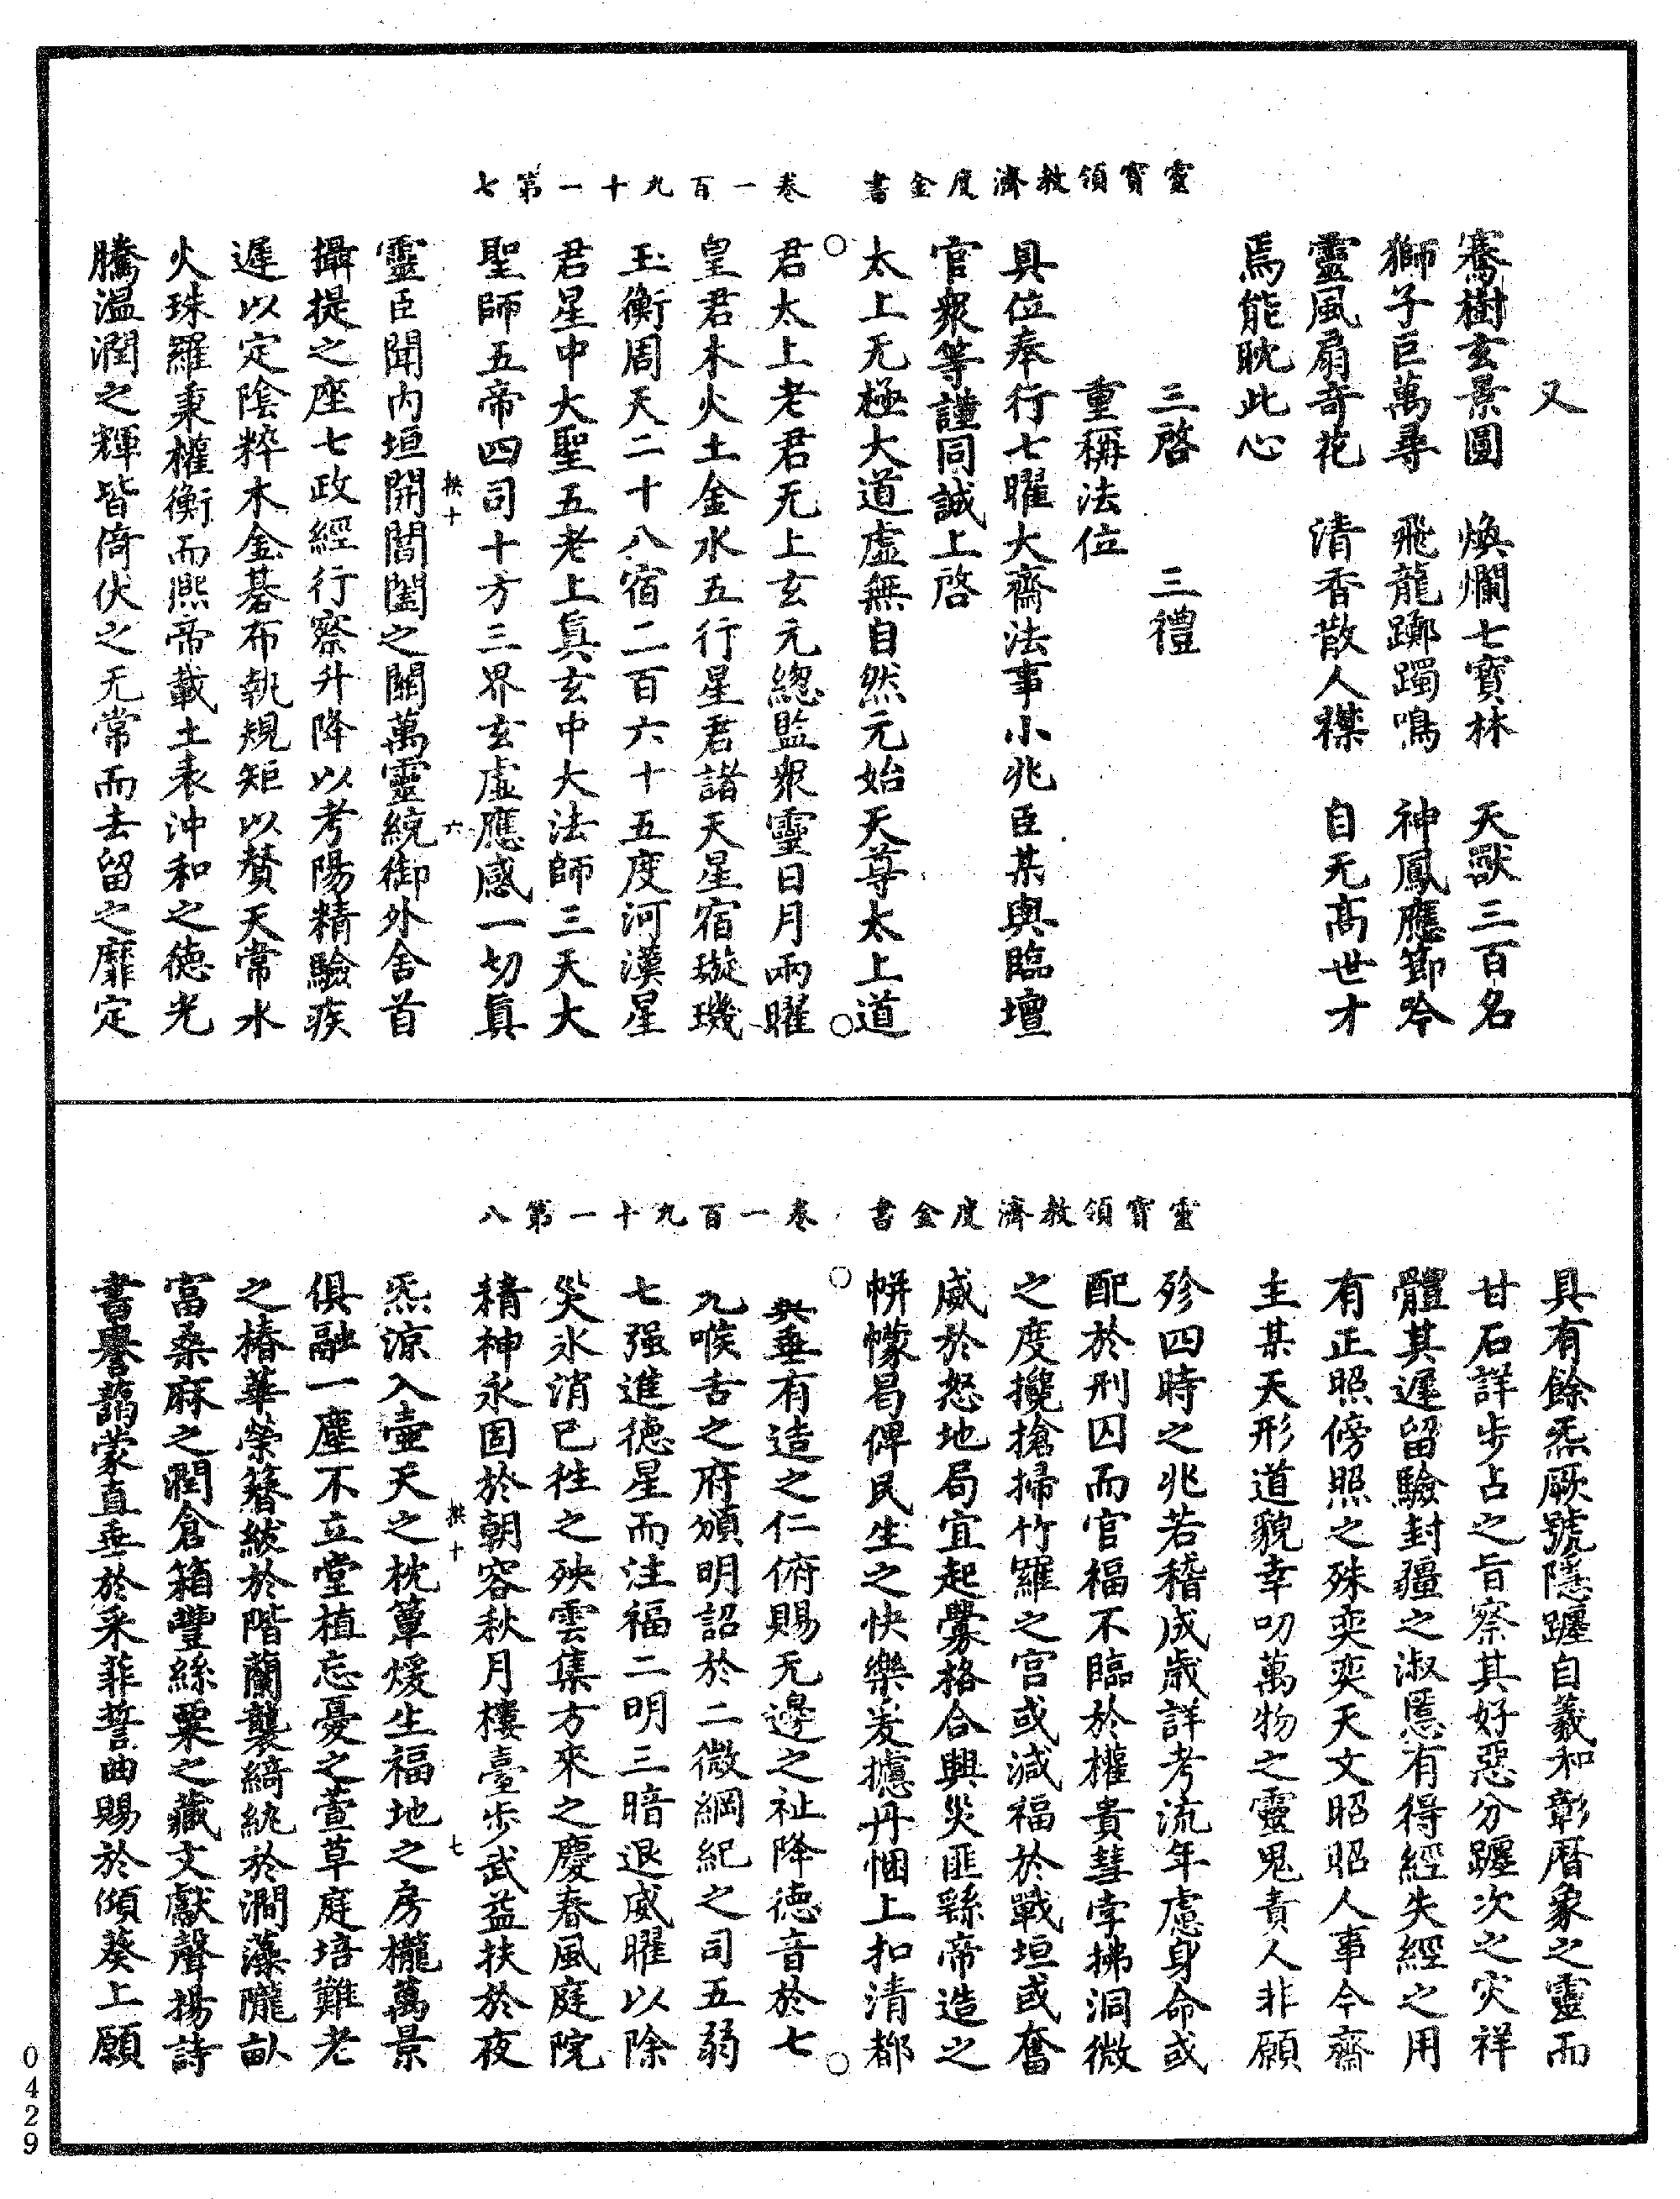 靈寶領教濟度金書　卷一百九十一第七
又
騫樹玄景圓　煥爛七寶林　天獸三百名
獅子巨萬尋　飛龍躑躅鳴　神鳳應節吟
靈風扇奇花　清香散人襟　自无高世才
焉能耽此心
三啓　三禮
重稱法位
具位奉行七曜大齋法事小兆臣某與臨壇
官衆等謹同誠上啓
太上无極大道虛無自然元始天尊太上道
君太上老君无上玄元總監衆靈日月兩曜
皇君木火土金水五行星君諸天星宿璇璣
玉衡周天二十八宿二百六十五度河漢星
君星中大聖五老上眞玄中大法師三天大
聖師五帝四司十方三界玄虛應感一切眞
靈臣聞内垣開閶闔之關萬靈統御外舍首
攝提之座七政經行察升降以考陽精驗疾
遲以定陰粹木金碁布執規矩以賛天常水
火珠羅秉權衡而熙帝載土表沖和之德光
騰溫潤之輝皆倚伏之无常而去留之靡定
袟十　六
靈寶領教濟度金書　卷一百九十一第八
具有餘炁厥號隱躔自羲和彰曆象之靈而
甘石詳步占之旨察其好惡分躔次之灾祥
體其遲留驗封疆之淑慝有得經失經之用
有正照傍照之殊奕奕天文昭昭人事今齋
主某天形道貌幸叨萬物之靈鬼責人非願
殄四時之兆若稽成歲詳考流年慮身命或
配於刑囚而官福不臨於權貴彗孛拂洞微
之度攙搶掃竹羅之宮或減福於戰垣或奮
威於怒地局宜起釁格合興災匪繇帝造之
帡幪曷俾民生之快樂爰攄丹悃上扣清都
與垂有造之仁俯賜无邊之祉降德音於七
九喉舌之府頒明詔於二微綱紀之司五弱
七强進德星而注福二明三暗退威曜以除
災氷消已徃之殃雲集方來之慶春風庭院
精神永固於朝容秋月樓臺步武益扶於夜
炁涼入壺天之枕簟煖生福地之房櫳萬景
俱融一塵不立堂植忘憂之萱草庭培難老
之椿華榮簪紱於階蘭襲綺紈於澗藻隴畒
富桑麻之潤倉箱豐絲粟之藏文獻聲揚詩
書譽藹蒙直垂於采菲誓曲賜於傾葵上願
袟十　七
0429